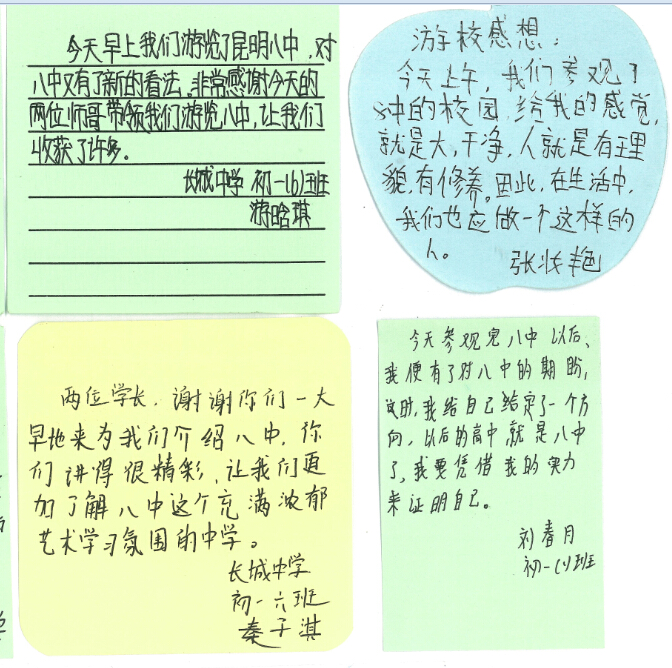 今天早上我们游览了昆明八中，对
八中又有了新的看法，非常感谢今天的
两位师哥带领我们游览八中，让我们
收获了许多。
长城中学 初一(6)班
游晗琪
游学校感想：
今天上午，我们参观了
八中的校园，给我的感觉，
就是大，干净，人就是有礼
貌，有修养。因此，在生活中，
我们也应做一个这样的
人。 张妆艳
两位学长，谢谢你们一大
早地来为我们介绍八中，你
们讲得很精彩，让我们更
加了解八中这个充满浓郁
艺术学习氛围的中学。
长城中学
初一六班
秦子淇
今天参观完八中以后、
我便有了对八中的期盼，
这时，我给自己给定了一个方
向，以后的高中，就是八中
了，我要凭借我的实力
来证明自己。
刘春月
初一(1)班